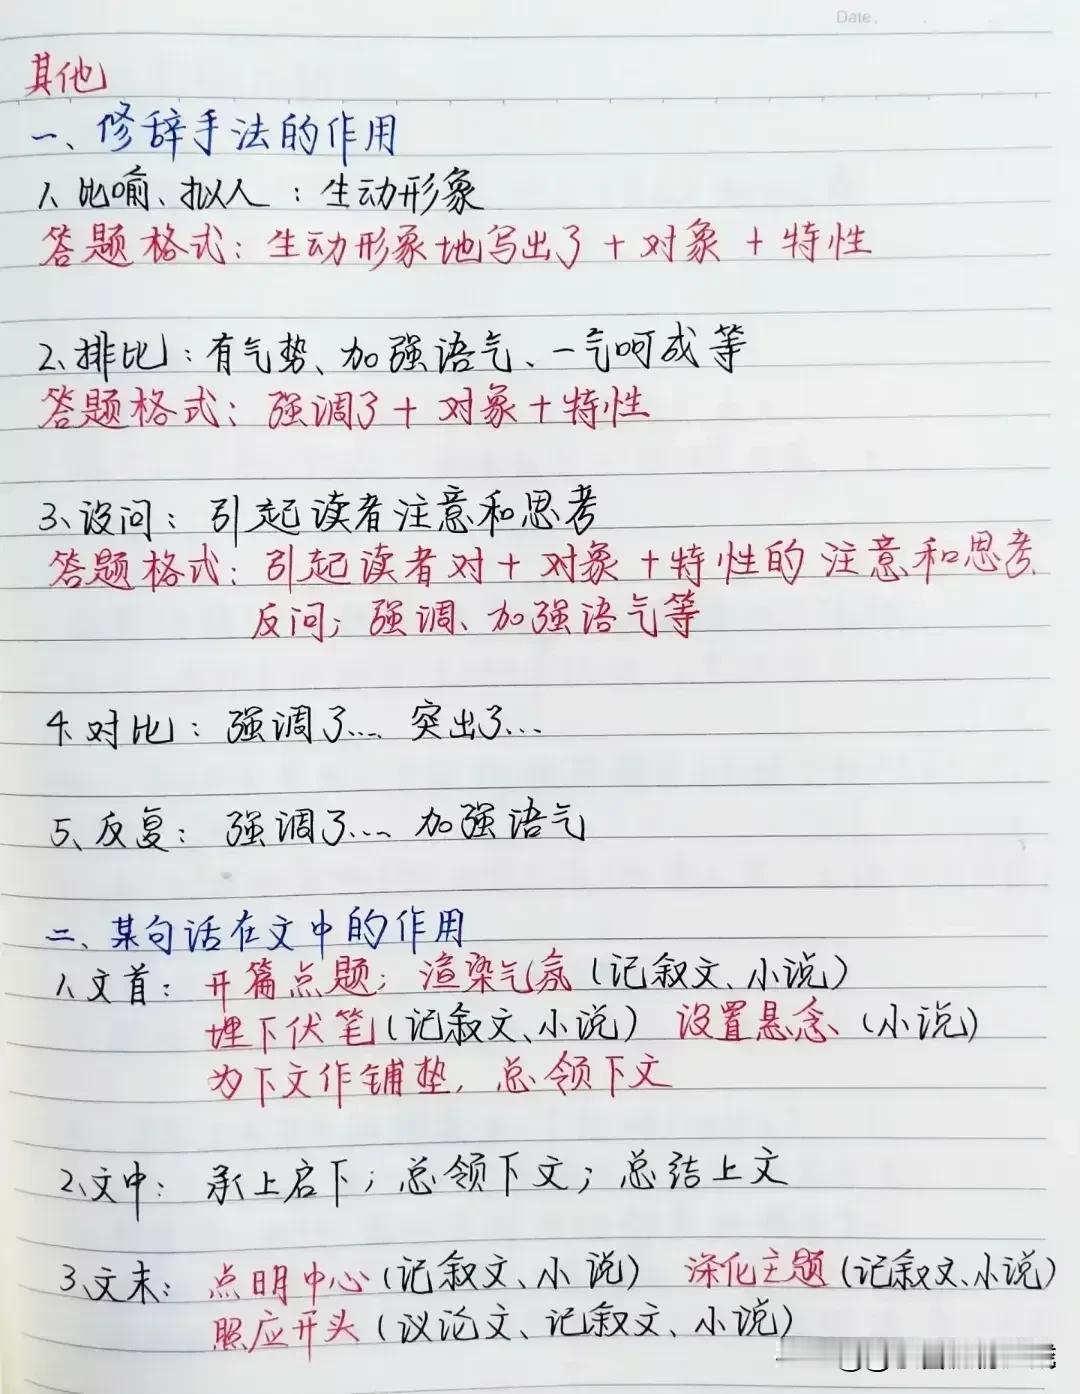 Date.
其他
一、修辞手法的作用
1、比喻、拟人：生动形象
答题格式：生动形象地写出了+对象+特性
2、排比：有气势、加强语气、一气呵成等
答题格式：强调了+对象+特性
3、设问：引起读者注意和思考
答题格式：引起读者对+对象+特性的注意和思考
反问；强调、加强语气等
4、对比：强调了... 突出了...
5、反复：强调了... 加强语气
二、某句话在文中的作用
1、文首：开篇点题；渲染气氛(记叙文、小说)
埋下伏笔(记叙文、小说) 设置悬念(小说)
为下文作铺垫，总领下文
2、文中：承上启下；总领下文；总结上文
3、文末：点明中心(记叙文、小说) 深化主题(记叙文、小说)
照应开头(议论文、记叙文、小说)